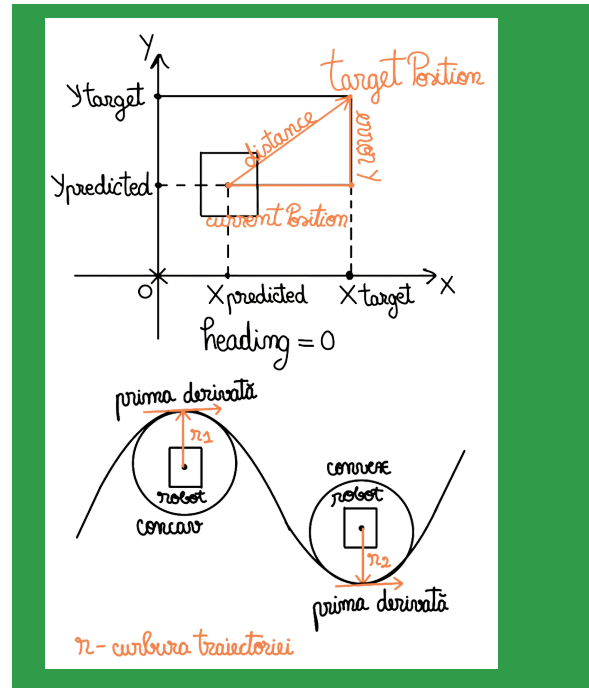 Y
target Position
Y target
distance
error Y
Y predicted
current Position
O
X predicted
X target
X
heading = 0
prima derivată
r1
robot
concav
convex
robot
r2
prima derivată
r - curbura traiectoriei